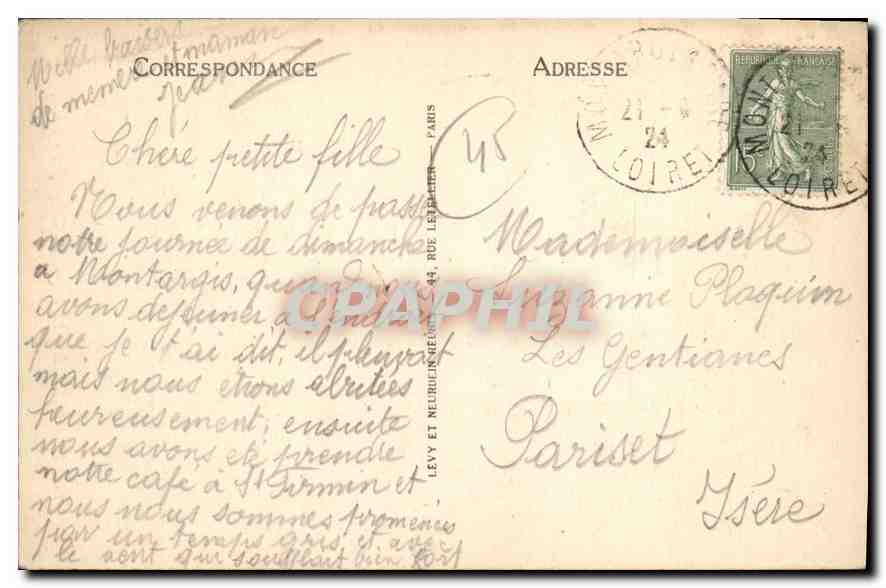 Mille baisers
de memere et maman
Jean
CORRESPONDANCE
ADRESSE
45
Chère petite fille
Nous venons de passer
notre journée de dimanche
a Montargis, quand nous
avons dejeuner à l'endroit
que je t'ai dit, il pleuvait
mais nous etions abritées
heureusement, ensuite
nous avons eté prendre
notre café à St Firmin et
nous nous sommes promenées
par un temps gris et avec
le vent qui soufflait bien fort
LEVY ET NEURDEIN REUNIS, 44, RUE LETELLIER — PARIS
REPUBLIQUE FRANÇAISE
15
LOIRET
24
LOIRET
Mademoiselle
Suzanne Plaquin
Les Gentianes
Pariset
Isère
CPAPHIL